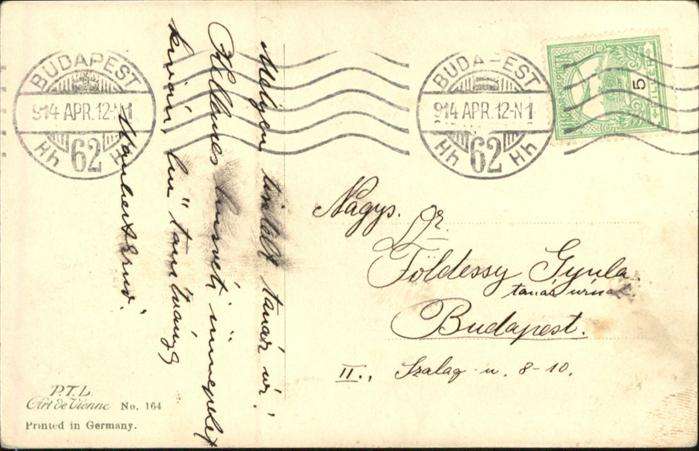 BUDAPEST
914 APR. 12-N1
62
Hh Hh
BUDA-EST
914 APR. 12-N1
62
Hh Hh
5
Mélyen tisztelt tanár úr!
Kellemes husvéti ünnepeket
kíván, hű tanítványa
Ernő.
Nagys. Dr.
Földessy Gyula
tanár úrnak
Budapest.
II., Szalag-u. 8-10.
P.T.L.
Art de Vienne No. 164
Printed in Germany.